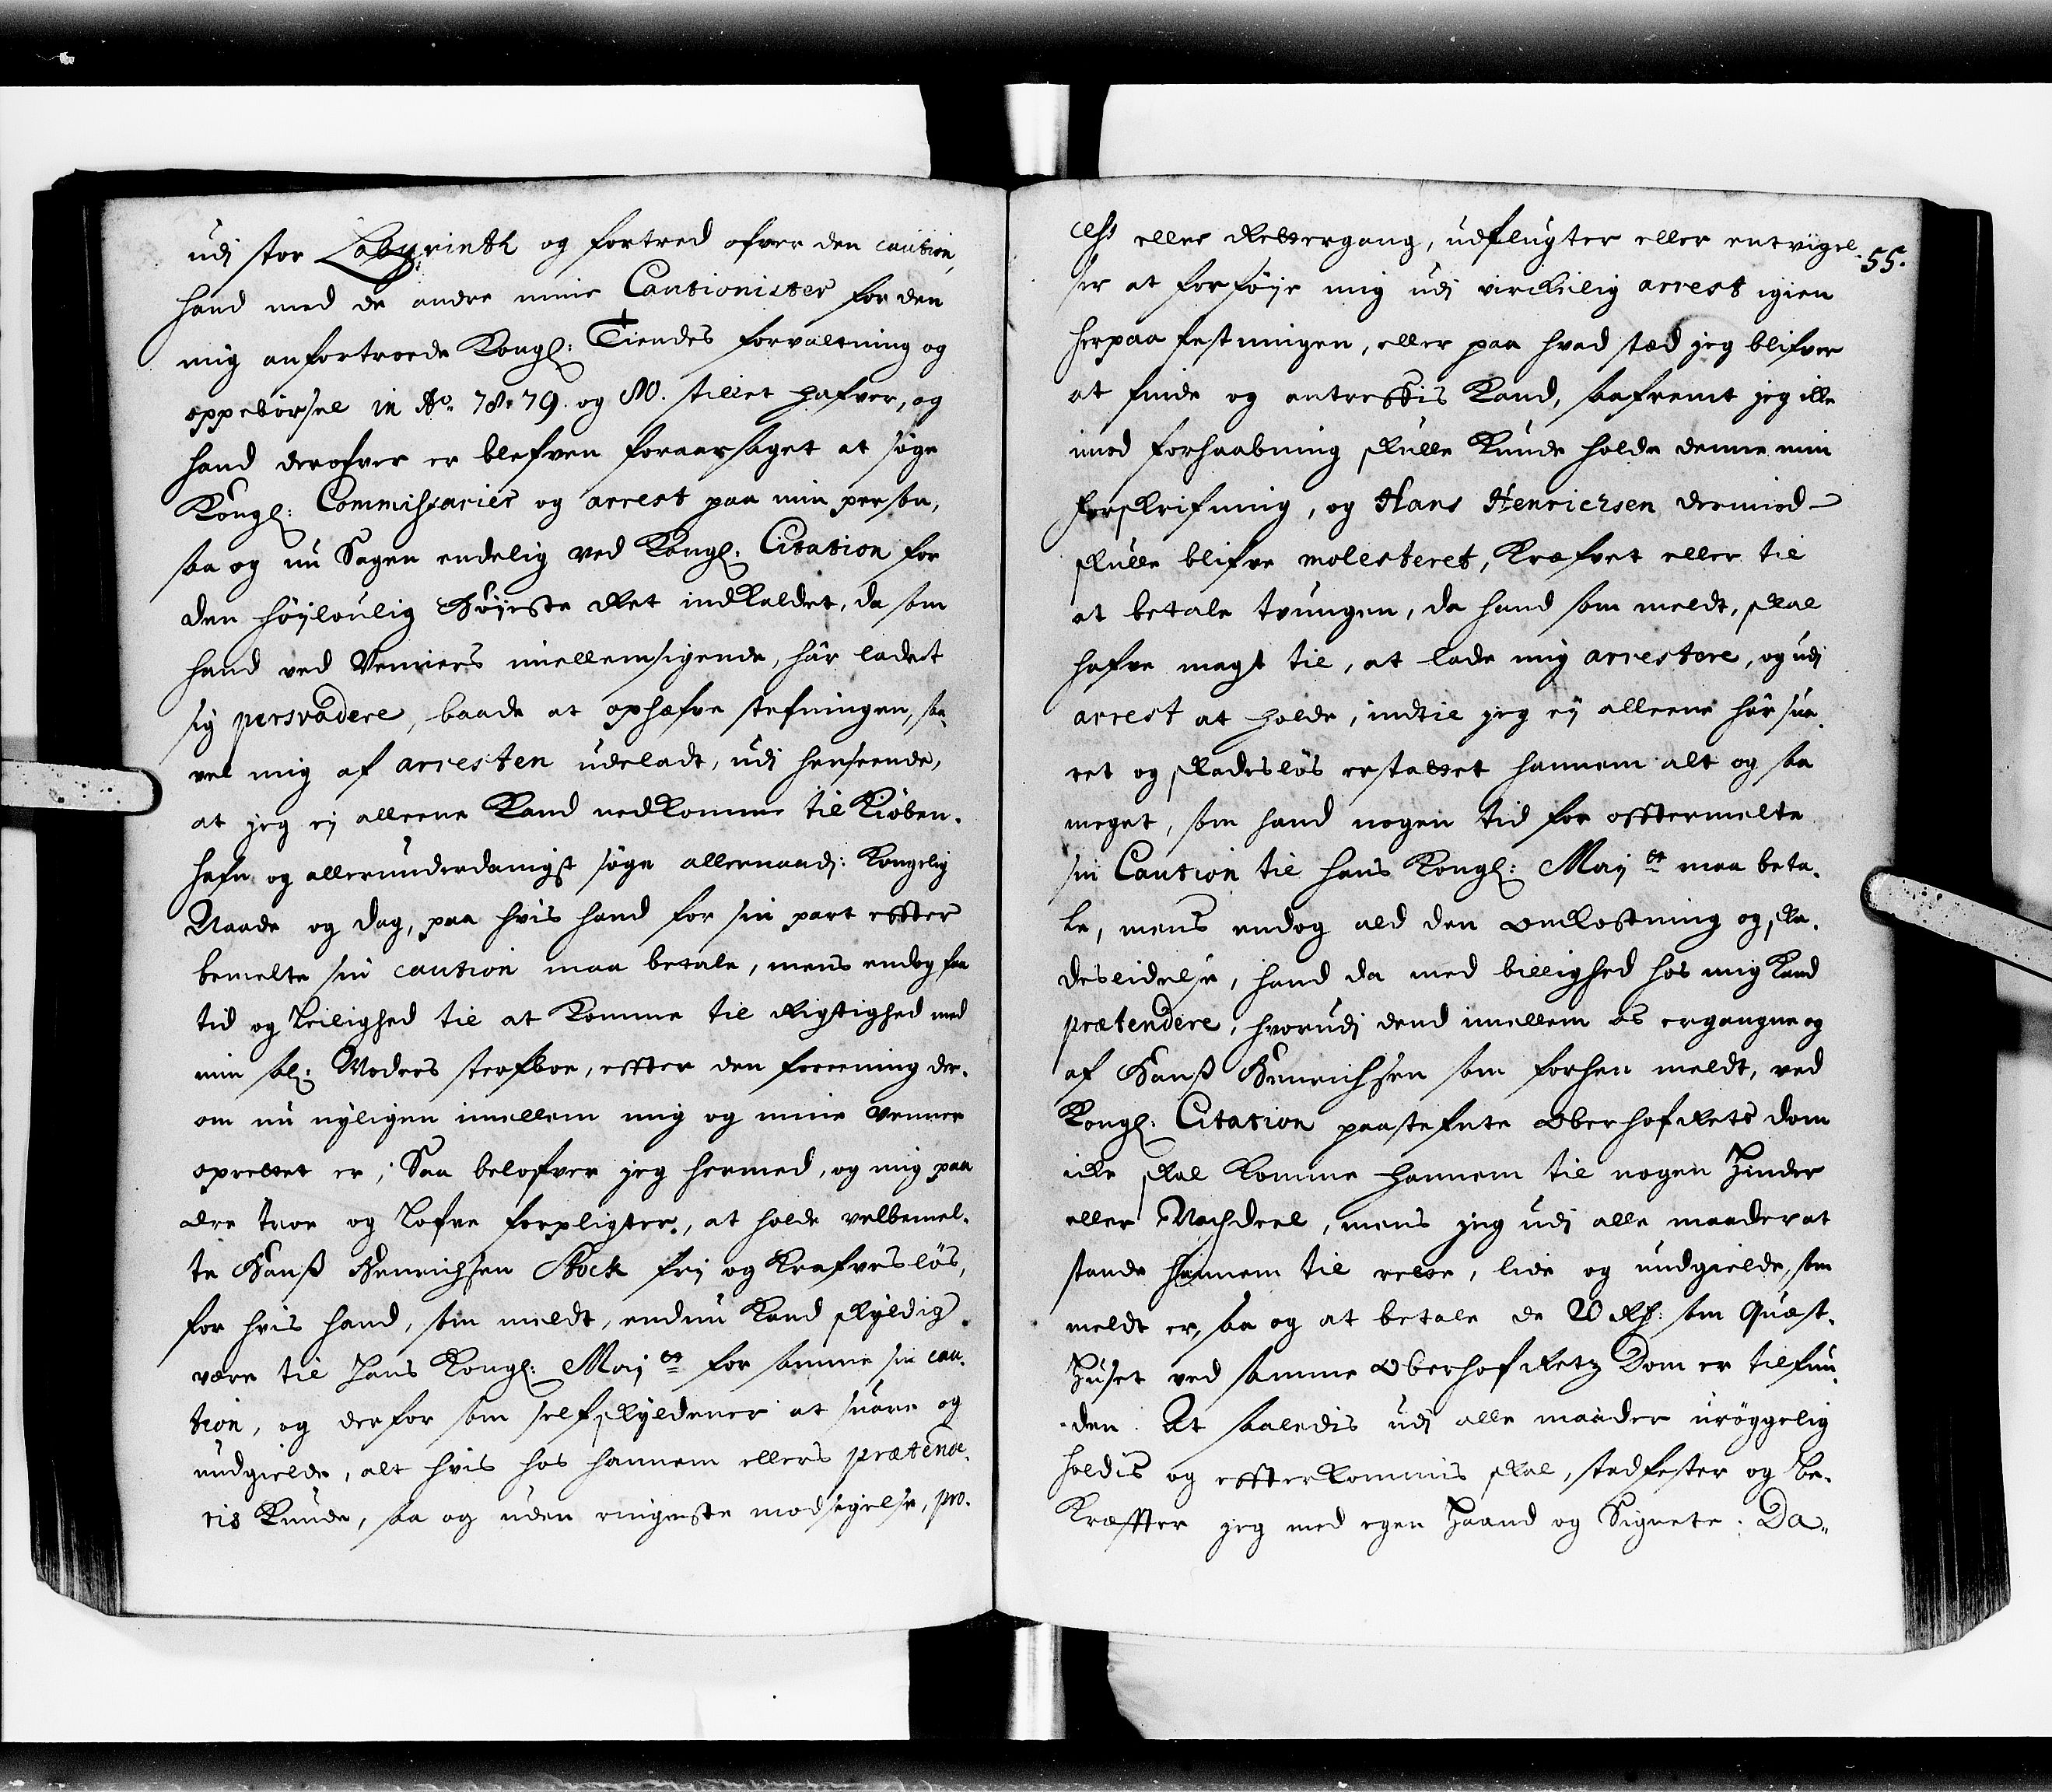 udj stor Labyrinth og fortred ofver den caution,
hand med de andre mine Cautionister for den
mig anfortroede Kongl: Tiendes forvaltning og
oppebörsel in Ao. 78. 79. og 80. stillet hafver, og
hand derofver er blefven foraarsaget at søge
Kongl: Commissarier og arrest paa min person,
saa og nu Sagen endelig ved Kongl: Citation for
den høyloulig Høyeste Ret indkaldet, da som
hand ved Venners imellemsigende, här ladet
sig persvadere, baade at ophæfve stefningen, saa-
vel mig af arresten udeladt, udj henseende,
at jeg ej alleene Kand nedkomme til Kiøben-
hafn og allerunderdanigst søge allernaadi: Kongelig
Naade og dag, paa hvis hand for sin part effter
bemelte sin caution maa betale, mens endog faa
tid og Leilighed til at Komme til Rigtighed med
min Sal: Moders sterfboe, effter den foreening der-
om nu nyligen imellem mig og mine venner
oprettet er; Saa belofver jeg hermed, og mig paa
ære troe og Lofve forpligter, at holde velbemel-
te Hanß Henrichsen Bock frij og Krafvesløs,
for hvis hand, som meldt, endnu Kand skyldig
være til Hans Kongl: Maj et for samme sin cau-
tion, og derfor som self skyldener at svare og
undgielde, alt hvis hos hannem ellers prætende-
ris Kunde, saa og uden ringeste modsigelse, pro-
cess eller Rettergang, udflugter eller entvigel-
55.
ser at forføje mig udj virckelig arrest igien
herpaa festningen, eller paa hvad stæd jeg blifver
at finde og antreffis Kand, saafremt jeg ille
imod forhaabning skulle Kunde holde denne min
forskrifning, og Hans Henricksen dermod
skulle blifve molesteret, Kræfvet eller til
at betale tvungen, da hand som meldt, skal
hafve magt til, at lade mig arrestere, og udj
arrest at holde, indtil jeg ej alleene här sva-
ret og skadesløs erstattet hannem alt og saa
meget, som hand nogen tid for offtermelte
sin Caution til Hans Kongl: Maj et maa beta-
le, mens endog ald den omkostning og ska-
deslidelse, hand da med billighed hos mig Kand
prætendere, hvorudj dend imellem os ergangne og
af Hanß Henrichsen som forhen meldt, ved
Kongl: Citation paastefnte Oberhofrets dom
icke skal Komme hannem til nogen Hinder
eller Nachdeel, mens jeg udj alle maader at
stande hannem til rette, lide og undgielde, som
meldt er, saa og at betale de 20 Rd: som Quæst-
Huset ved samme Oberhof Retz Dom er tilfun-
den. At saaledis udj alle maader urøggelig
holdis og effterkommis skal, stadfester og be-
Kræffter jeg med egen Haand og Signete: Da-